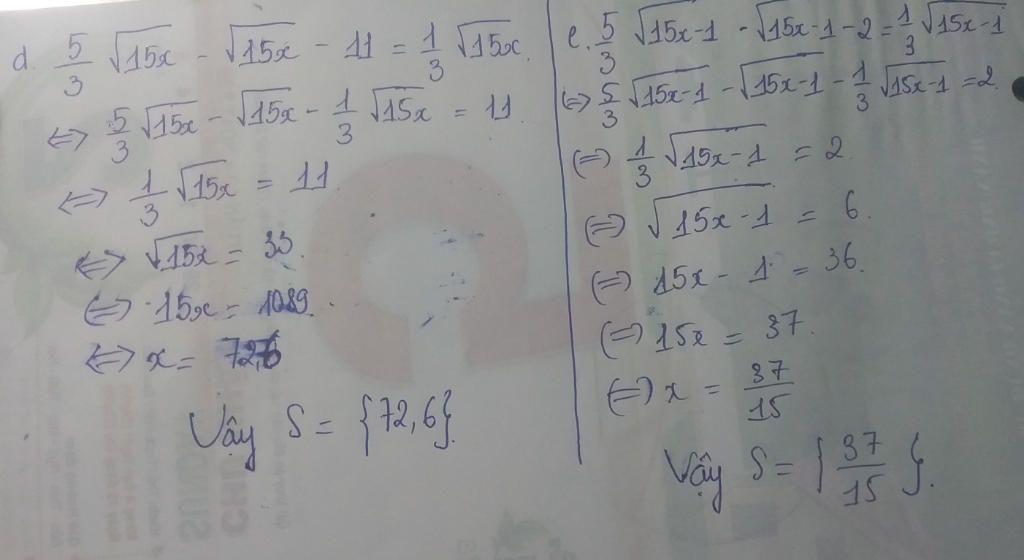 d. 5/3 √15x - √15x - 11 = 1/3 √15x.
<=> 5/3 √15x - √15x - 1/3 √15x = 11.
<=> 1/3 √15x = 11.
<=> √15x = 33.
<=> 15x = 1089.
<=> x = 72,6
Vậy S = {72,6}.
e. 5/3 √15x-1 - √15x-1 - 2 = 1/3 √15x-1
<=> 5/3 √15x-1 - √15x-1 - 1/3 √15x-1 = 2.
<=> 1/3 √15x-1 = 2.
<=> √15x-1 = 6.
<=> 15x - 1 = 36.
<=> 15x = 37.
<=> x = 37/15
Vậy S = {37/15}.